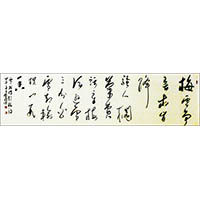 梅雪争
春未肯
降
骚人擱
笔费
评章梅
须逊雪
三分白
雪却输
梅一段
香